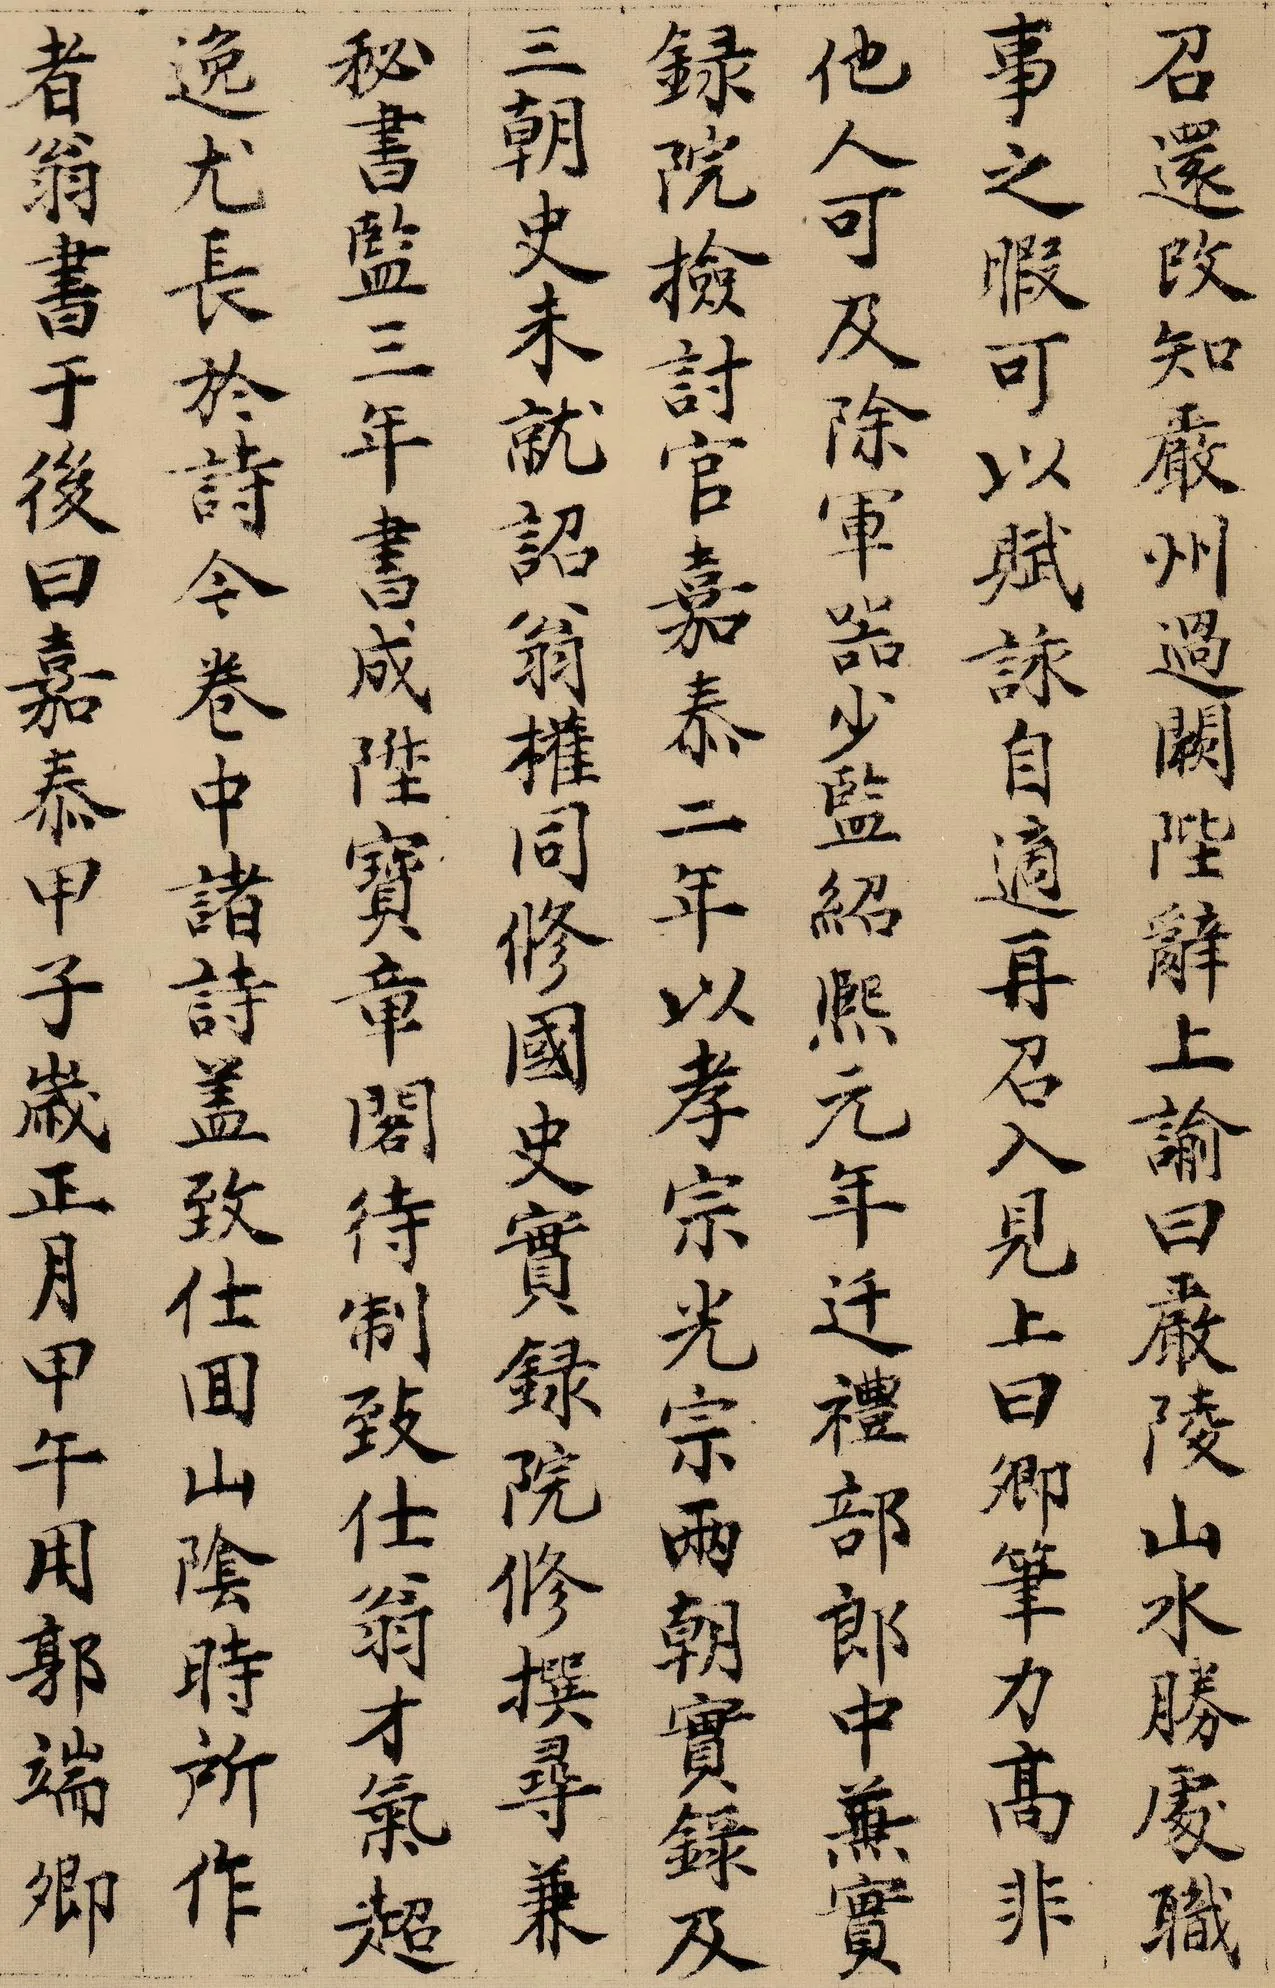 召還改知嚴州過闕陛辭上諭曰嚴陵山水勝處職
事之暇可以賦詠自適再召入見上曰卿筆力高非
他人可及除軍器少監紹熙元年迁禮部郎中兼實
録院撿討官嘉泰二年以孝宗光宗兩朝實録及
三朝史未就詔翁權同修國史實録院修撰尋兼
秘書監三年書成陞寶章閣待制致仕翁才氣超
逸尤長於詩今卷中諸詩盖致仕囬山陰時所作
者翁書于後曰嘉泰甲子歲正月甲午用郭端卿